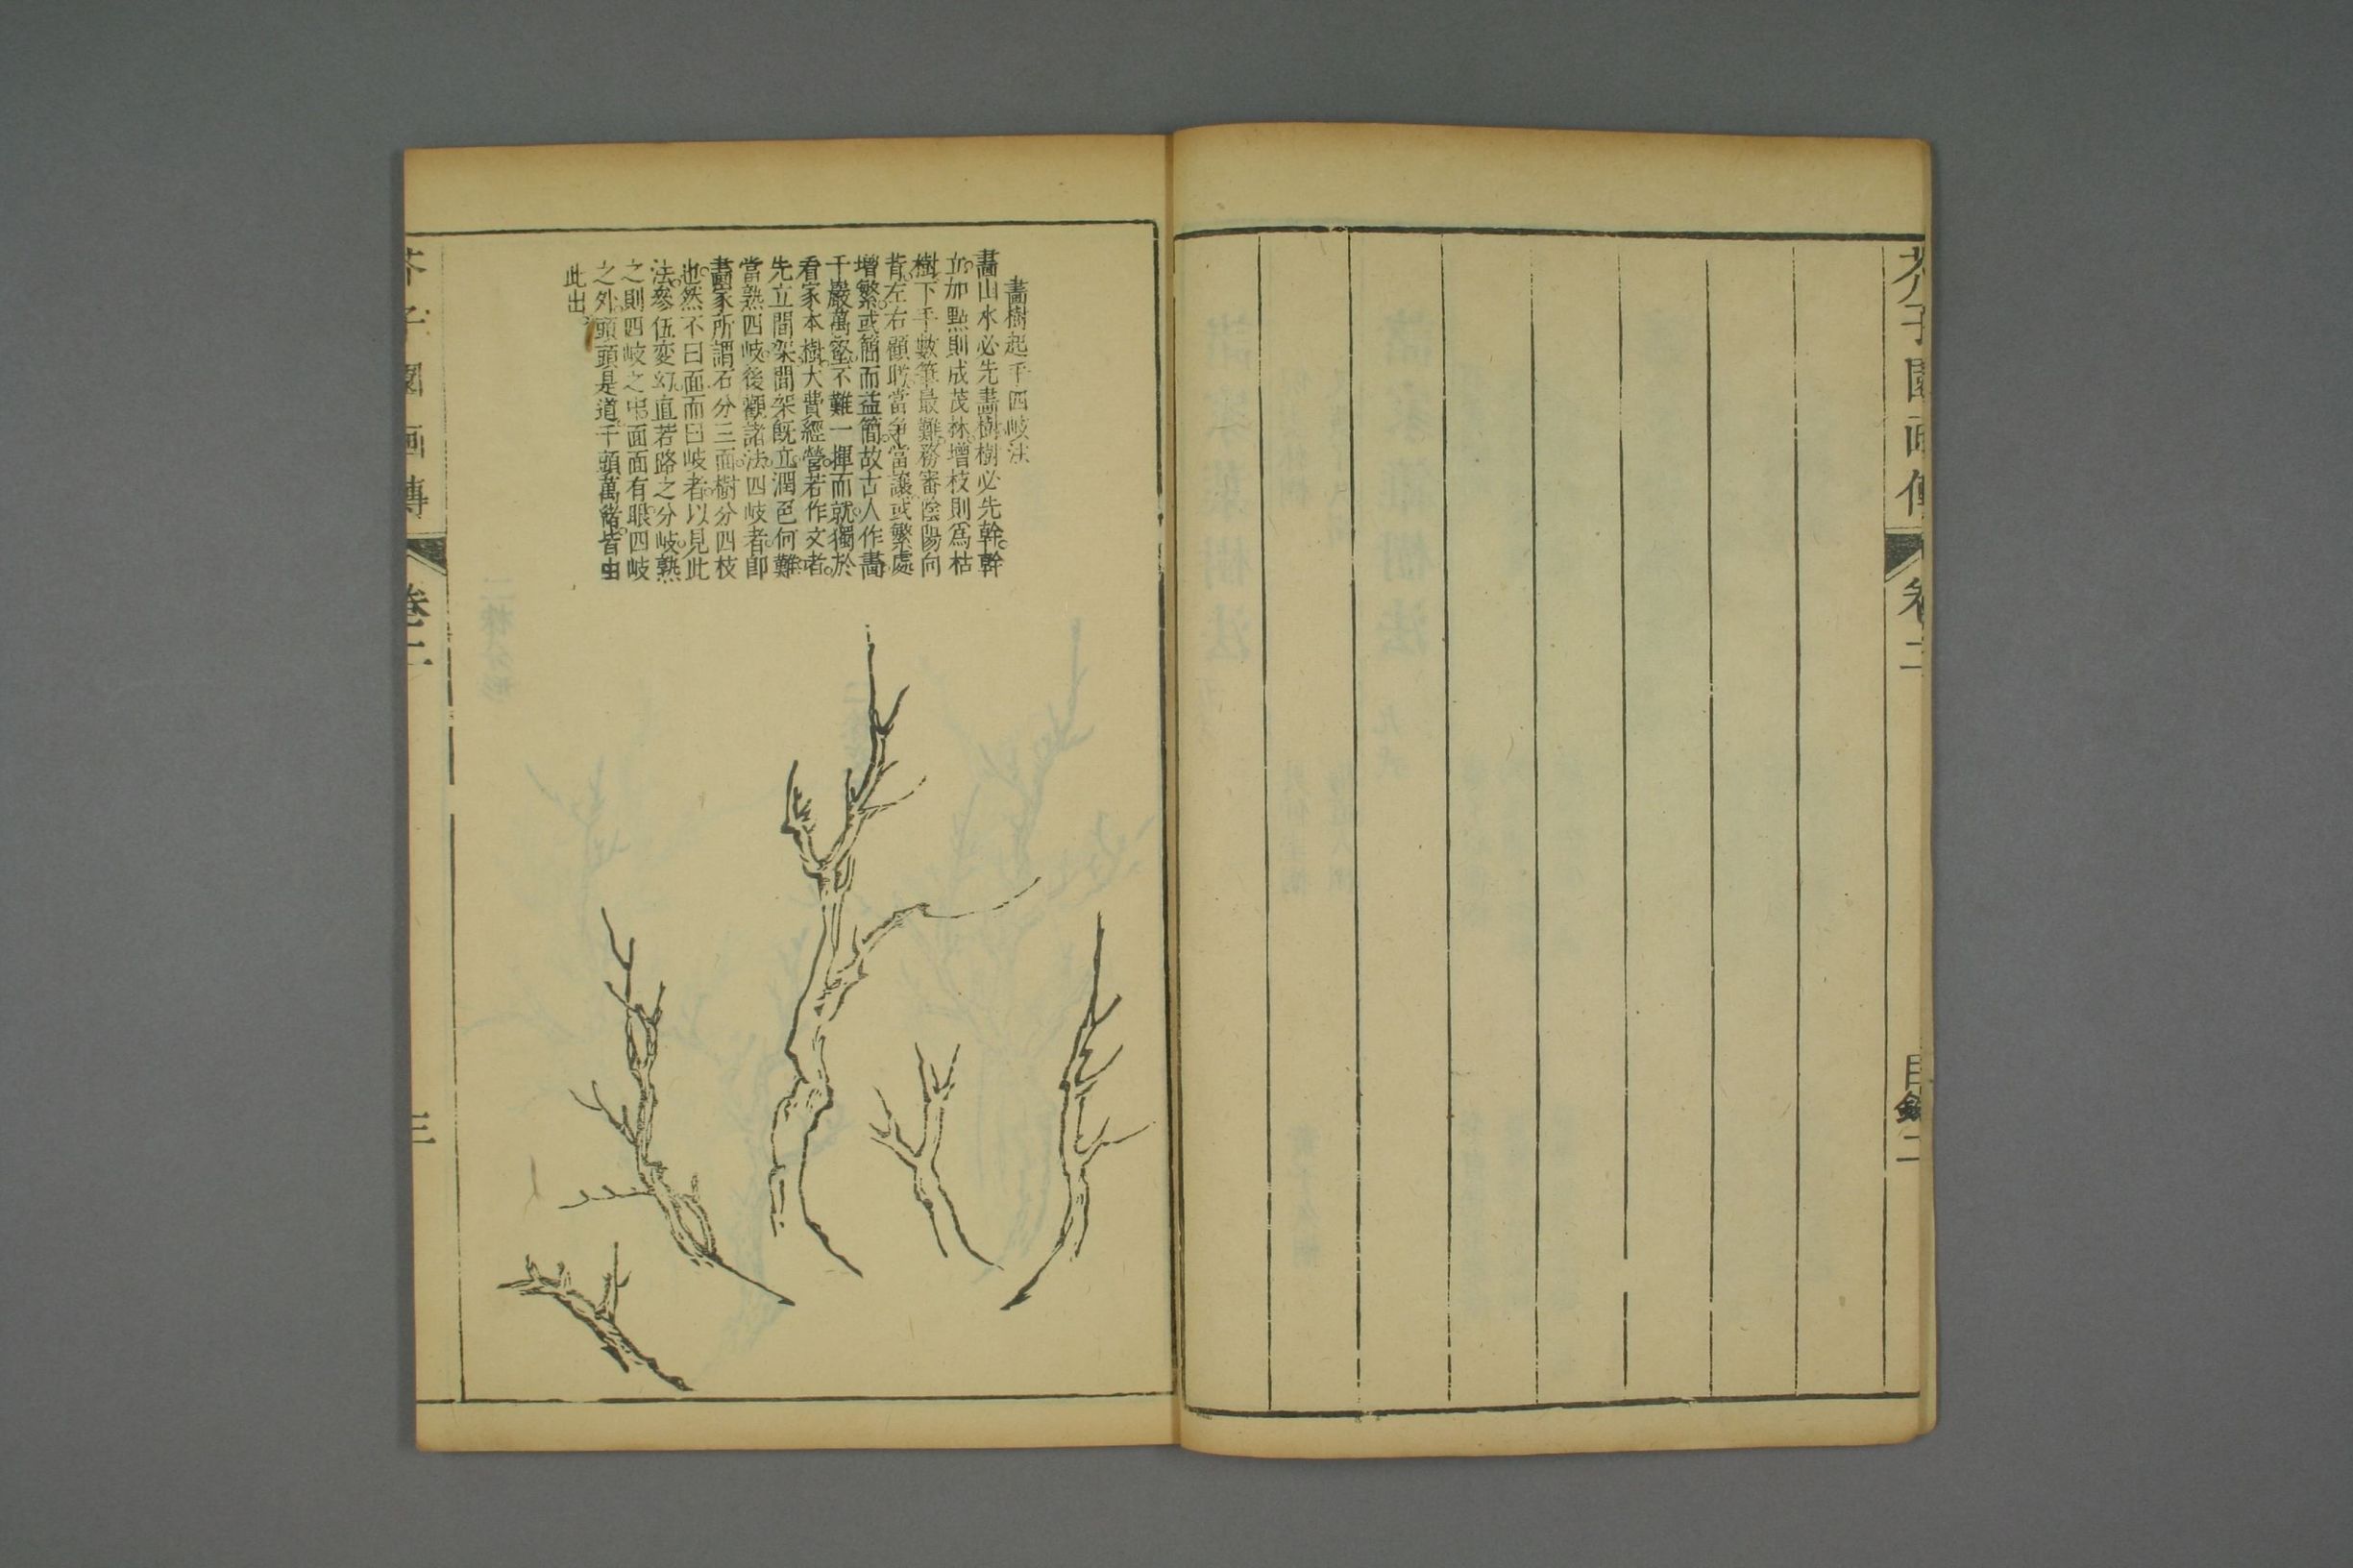 芥子園画傳
卷二
目錄二
畫樹起手四岐法
畫山水必先畫樹樹必先幹幹
立加點則成茂林增枝則爲枯
樹下手數筆最難務審陰陽向
背左右顧盼當爭當讓或繁處
增繁或簡而益簡故古人作畫
千巖萬壑不難一揮而就獨於
看家本樹大費經營若作文者
先立間架間架旣立潤色何難
當熟四岐後觀諸法四岐者卽
畫家所謂石分三面樹分四枝
也然不曰面而曰岐者以見此
法參伍変幻直若路之分岐熟
之則四岐之中面面有眼四岐
之外頭頭是道千頭萬緒皆由
此出
芥子園画傳
卷二
三